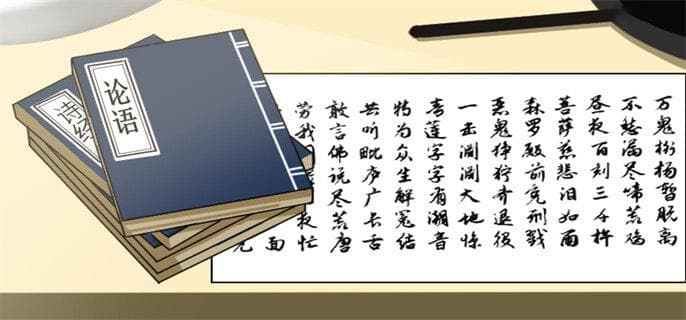 论语
诗经
万鬼桁杨暂脱离
不愁漏尽啼荒鸡
昼夜百刻三千杵
菩萨慈悲泪如雨
森罗殿前免刑戮
恶鬼狰狞齐退役
一击渊渊大地惊
青莲字字有潮音
特为众生解冤结
共听毗庐广长舌
敢言佛说尽荒唐
劳我夜忙
面